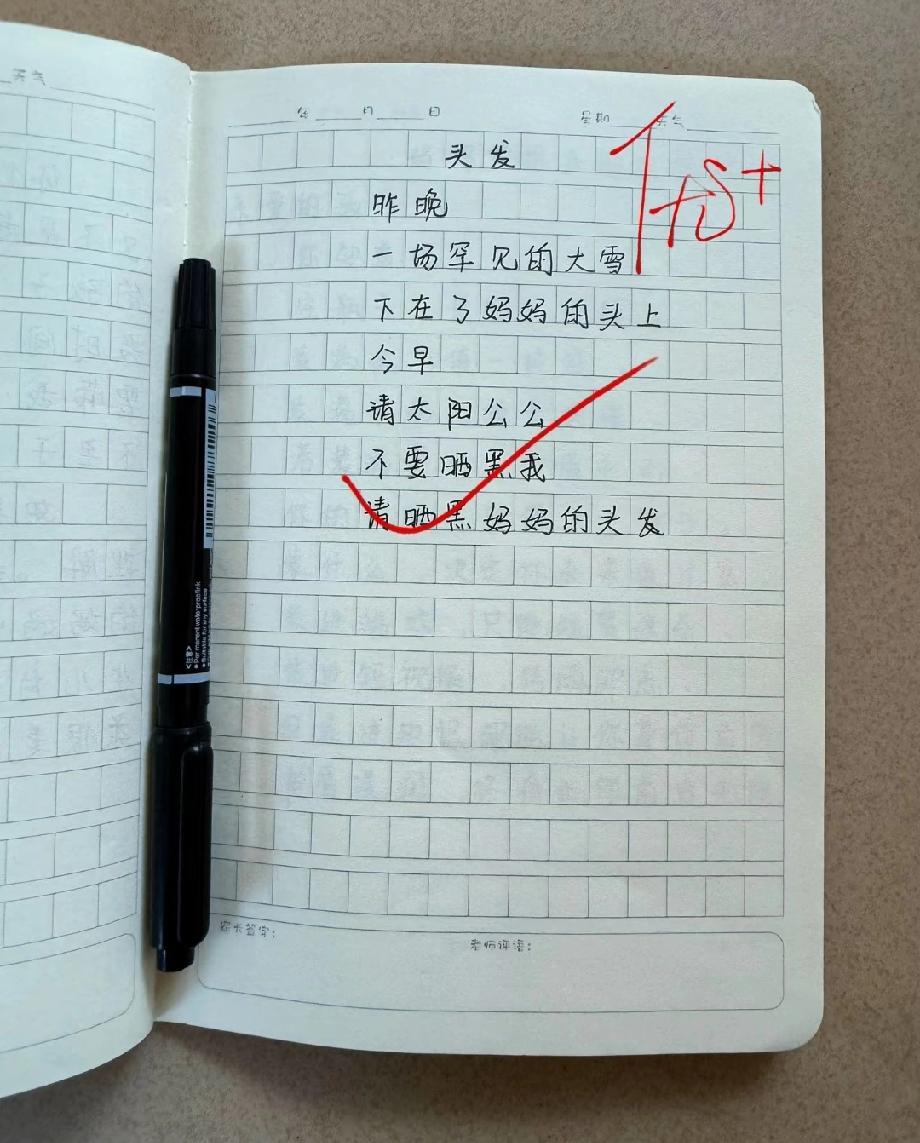 天气
年 月 日 星期 天气
头发
优+
昨晚
一场罕见的大雪
下在了妈妈的头上
今早
请太阳公公
不要晒黑我
请晒黑妈妈的头发
家长签字:
老师评语: